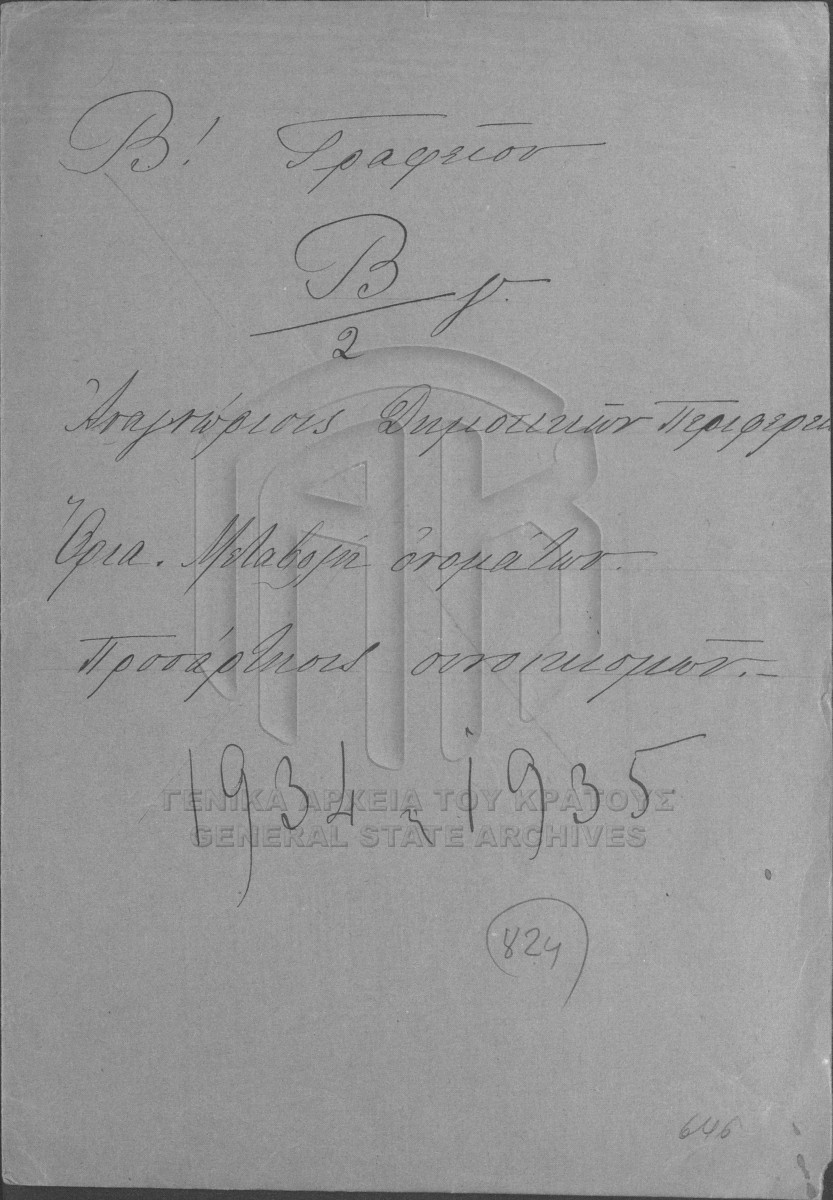 Β! Γραφεῖον
Β/2 γ.
Ἀναγνώρισις Δημοτικῶν Περιφερει
Ὅρια. Μεταβολὴ ὀνομάτων.
Προσάρτησις συνοικισμῶν.–
1934 - 1935
ΓΕΝΙΚΑ ΑΡΧΕΙΑ ΤΟΥ ΚΡΑΤΟΥΣ
GENERAL STATE ARCHIVES
824
646